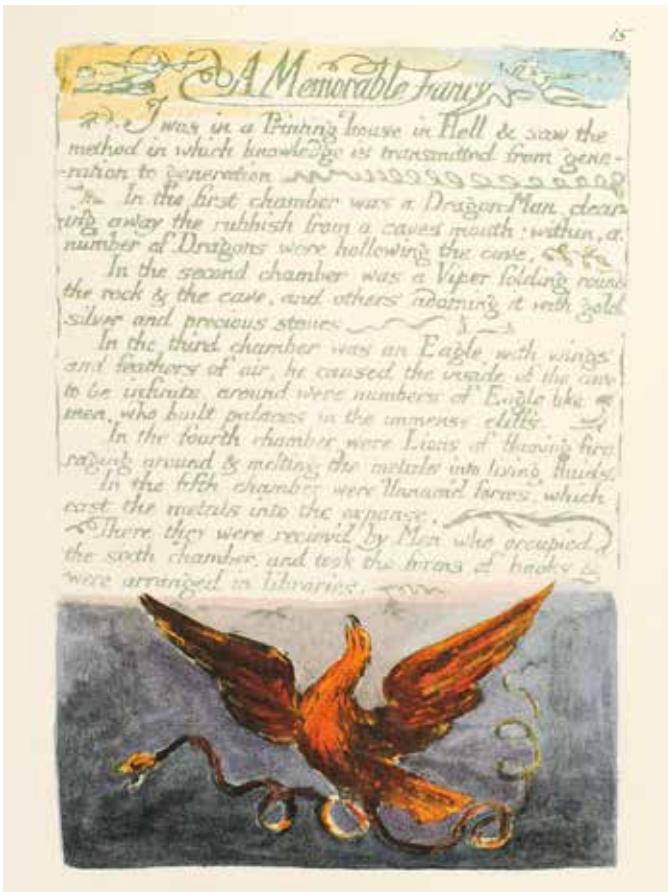 15
A Memorable Fancy
I was in a Printing house in Hell & saw the
method in which knowledge is transmitted from gene-
-ration to generation
In the first chamber was a Dragon-Man, clear-
ing away the rubbish from a caves mouth; within, a
number of Dragons were hollowing the cave,
In the second chamber was a Viper folding round
the rock & the cave, and others adorning it with gold
silver and precious stones
In the third chamber was an Eagle with wings
and feathers of air, he caused the inside of the cave
to be infinite, around were numbers of Eagle like
men, who built palaces in the immense cliffs.
In the fourth chamber were Lions of flaming fire
raging around & melting the metals into living fluids.
In the fifth chamber were Unnam'd forms, which
cast the metals into the expanse.
There they were reciev'd by Men who occupied
the sixth chamber, and took the forms of books &
were arranged in libraries.